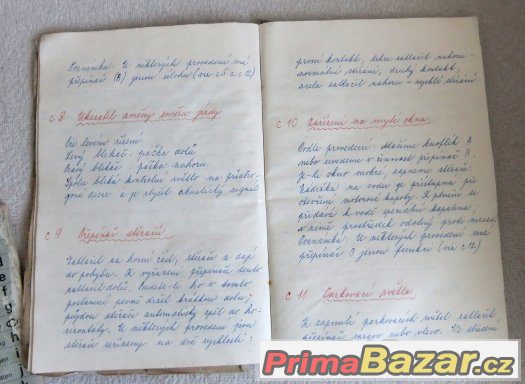 Poznámka: U některých provedení má
přepínač (B) jinou úlohu (viz c5 a c12)
c 8 Ukazatel změny směru jízdy
Při levém řízení
Levý blikač: páčka dolů
Pravý blikač: páčka nahoru
Spolu bliká kontrolní světlo na přístro-
jové desce a je slyšet akustický signál
c 9 Přepínač stěračů
Zatlačit na horní část; stěrače se dají
do pohybu. K vypnutí přepínač
zatlačit dolů. Bude-li ho v tomto
postavení první držet krátkou dobu;
půjdou stěrače automaticky zpět do ho-
rizontály. U některých provedení jsou
stěrače na dvě rychlosti:
první kontakt, lehce zatlačit nahoru -
normální stírání, druhý kontakt,
zcela zatlačit nahoru - rychlé stírání
c 10 Zařízení na mytí okna
Podle provedení: stěrače knoflík A
nebo uvedeme v činnost přepínač B.
Je-li okno mokré, zapneme stěrače
Nádržka na vodu je přístupná při
otevření motorové kapoty. K plnění se
přidává k vodě speciální kapalina
a v zimě prostředek odolný proti mrazu.
Poznámka: U některých provedení má
přepínač B jinou funkci (viz c12)
c 11 Parkovací světla
K zapnutí parkovacích světel zatlačit
přepínač vpravo nebo vlevo. Ve střední
d
e
f
g
h
i
PrimaBazar.cz